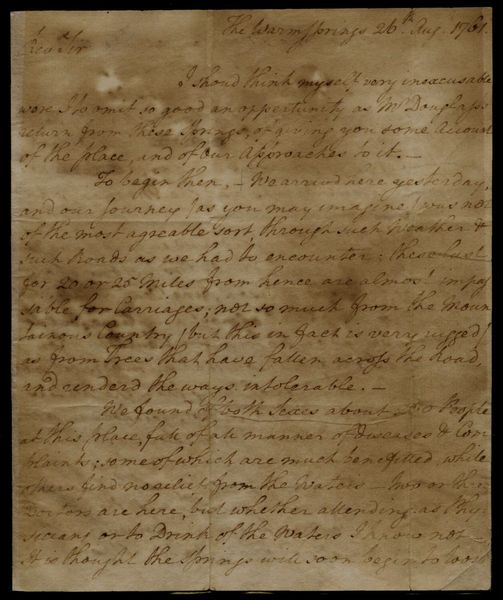 The Warm Springs 26th Aug. 1761.
Revd Sir
I shoud think myself very inexcusable
were I to omit so good an oppertunity as Mr Douglass's
return from these Springs, of giving you some Account
of the place, and of our Approaches to it. —
To begin then. — We arrivd here yesterday,
and our Journey (as you may imagine) was not
of the most agreable sort through such Weather &
such Roads as we had to encounter; these last
for 20 or 25 Miles from hence are almost impas
sable for Carriages; not so much from the Moun
tainous Country (but this in fact is very rugged)
as from Trees that have fallen across the Road,
and renderd the ways intolerable. —
We found of both Sexes about People
at this place, full of all manner of Diseases & Com
plaints; some of which are much benefitted, while
others find no relief from the Waters — two or three
Doctors are here, but whether attending as Phy
sicians or to Drink of the Waters I know not
It is thought the Springs will soon begin to